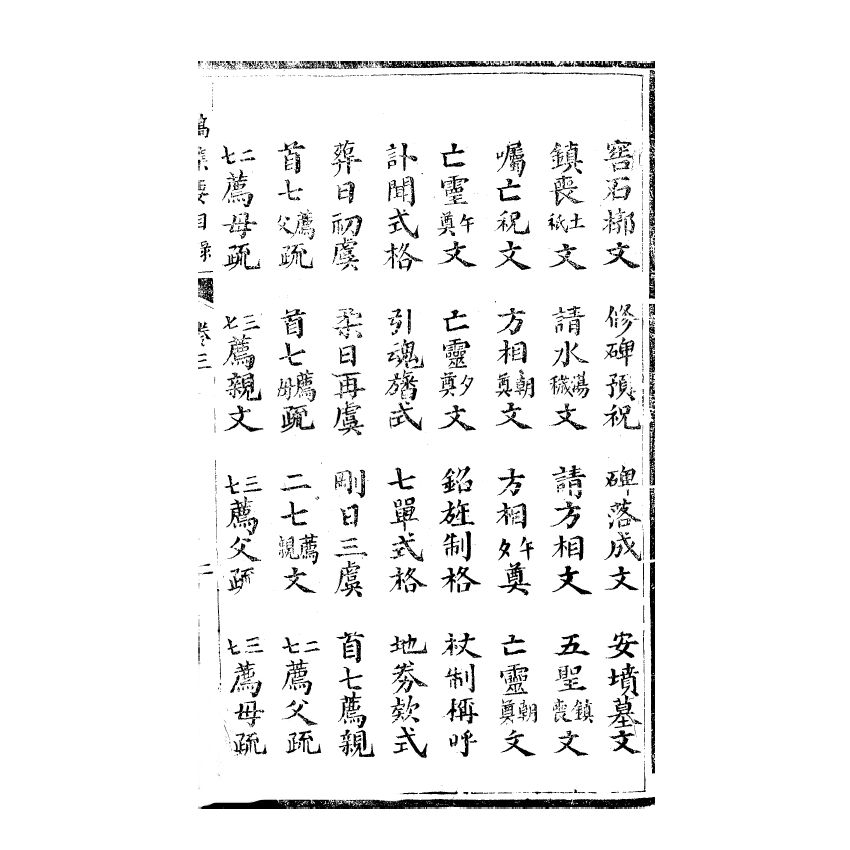 窖石槨文 修碑預祝 碑落成文 安墳墓文
鎮喪土祇文 請水蕩穢文 請方相文 五聖鎮喪文
囑亡祝文 方相朝奠文 方相午夕奠 亡靈朝奠文
亡靈午奠文 亡靈夕奠文 銘旌制格 杖制稱呼
訃聞式格 引魂旛式 七單式格 地券欵式
葬日初虞 柔日再虞 剛日三虞 首七薦親
首七薦父疏 首七薦母疏 二七薦親文 二七薦父疏
二七薦母疏 三七薦親文 三七薦父疏 三七薦母疏
集要目錄 卷三 二